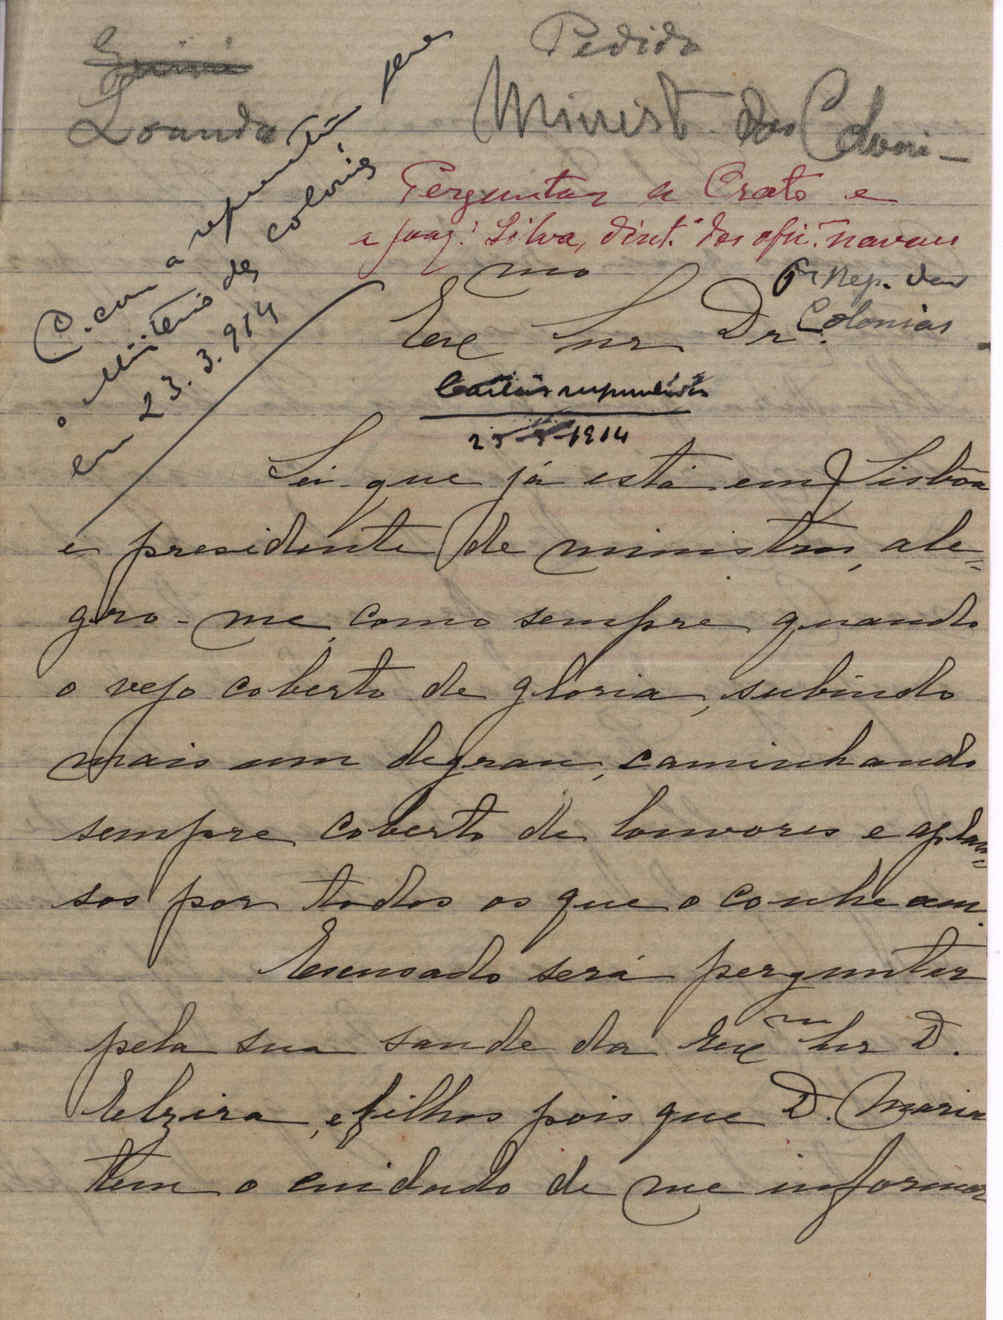 Pedido
Loanda
Minist. das Coloni-
Perguntar a Crato e
a Joaq. Silva, dirct. das ofi. navaes
Rep. das
Colonias
C. com a repartição
o Ministerio das colonias
em 23.3.914
Exc mo Snr Dr.
Cartões
25-3-1914
Sei que já está em Lisbôa
e presidente de ministros, ale-
gro-me, como sempre quando
o vejo coberto de gloria, subindo
mais um degrau, caminhando
sempre coberto de louvores e aplau-
sos por todos os que o conheçam.
Escusado será perguntar
pela sua saude da Exc ma Snr D.
Elzira, e filhos pois que D. Maria
tem o cuidado de me informar